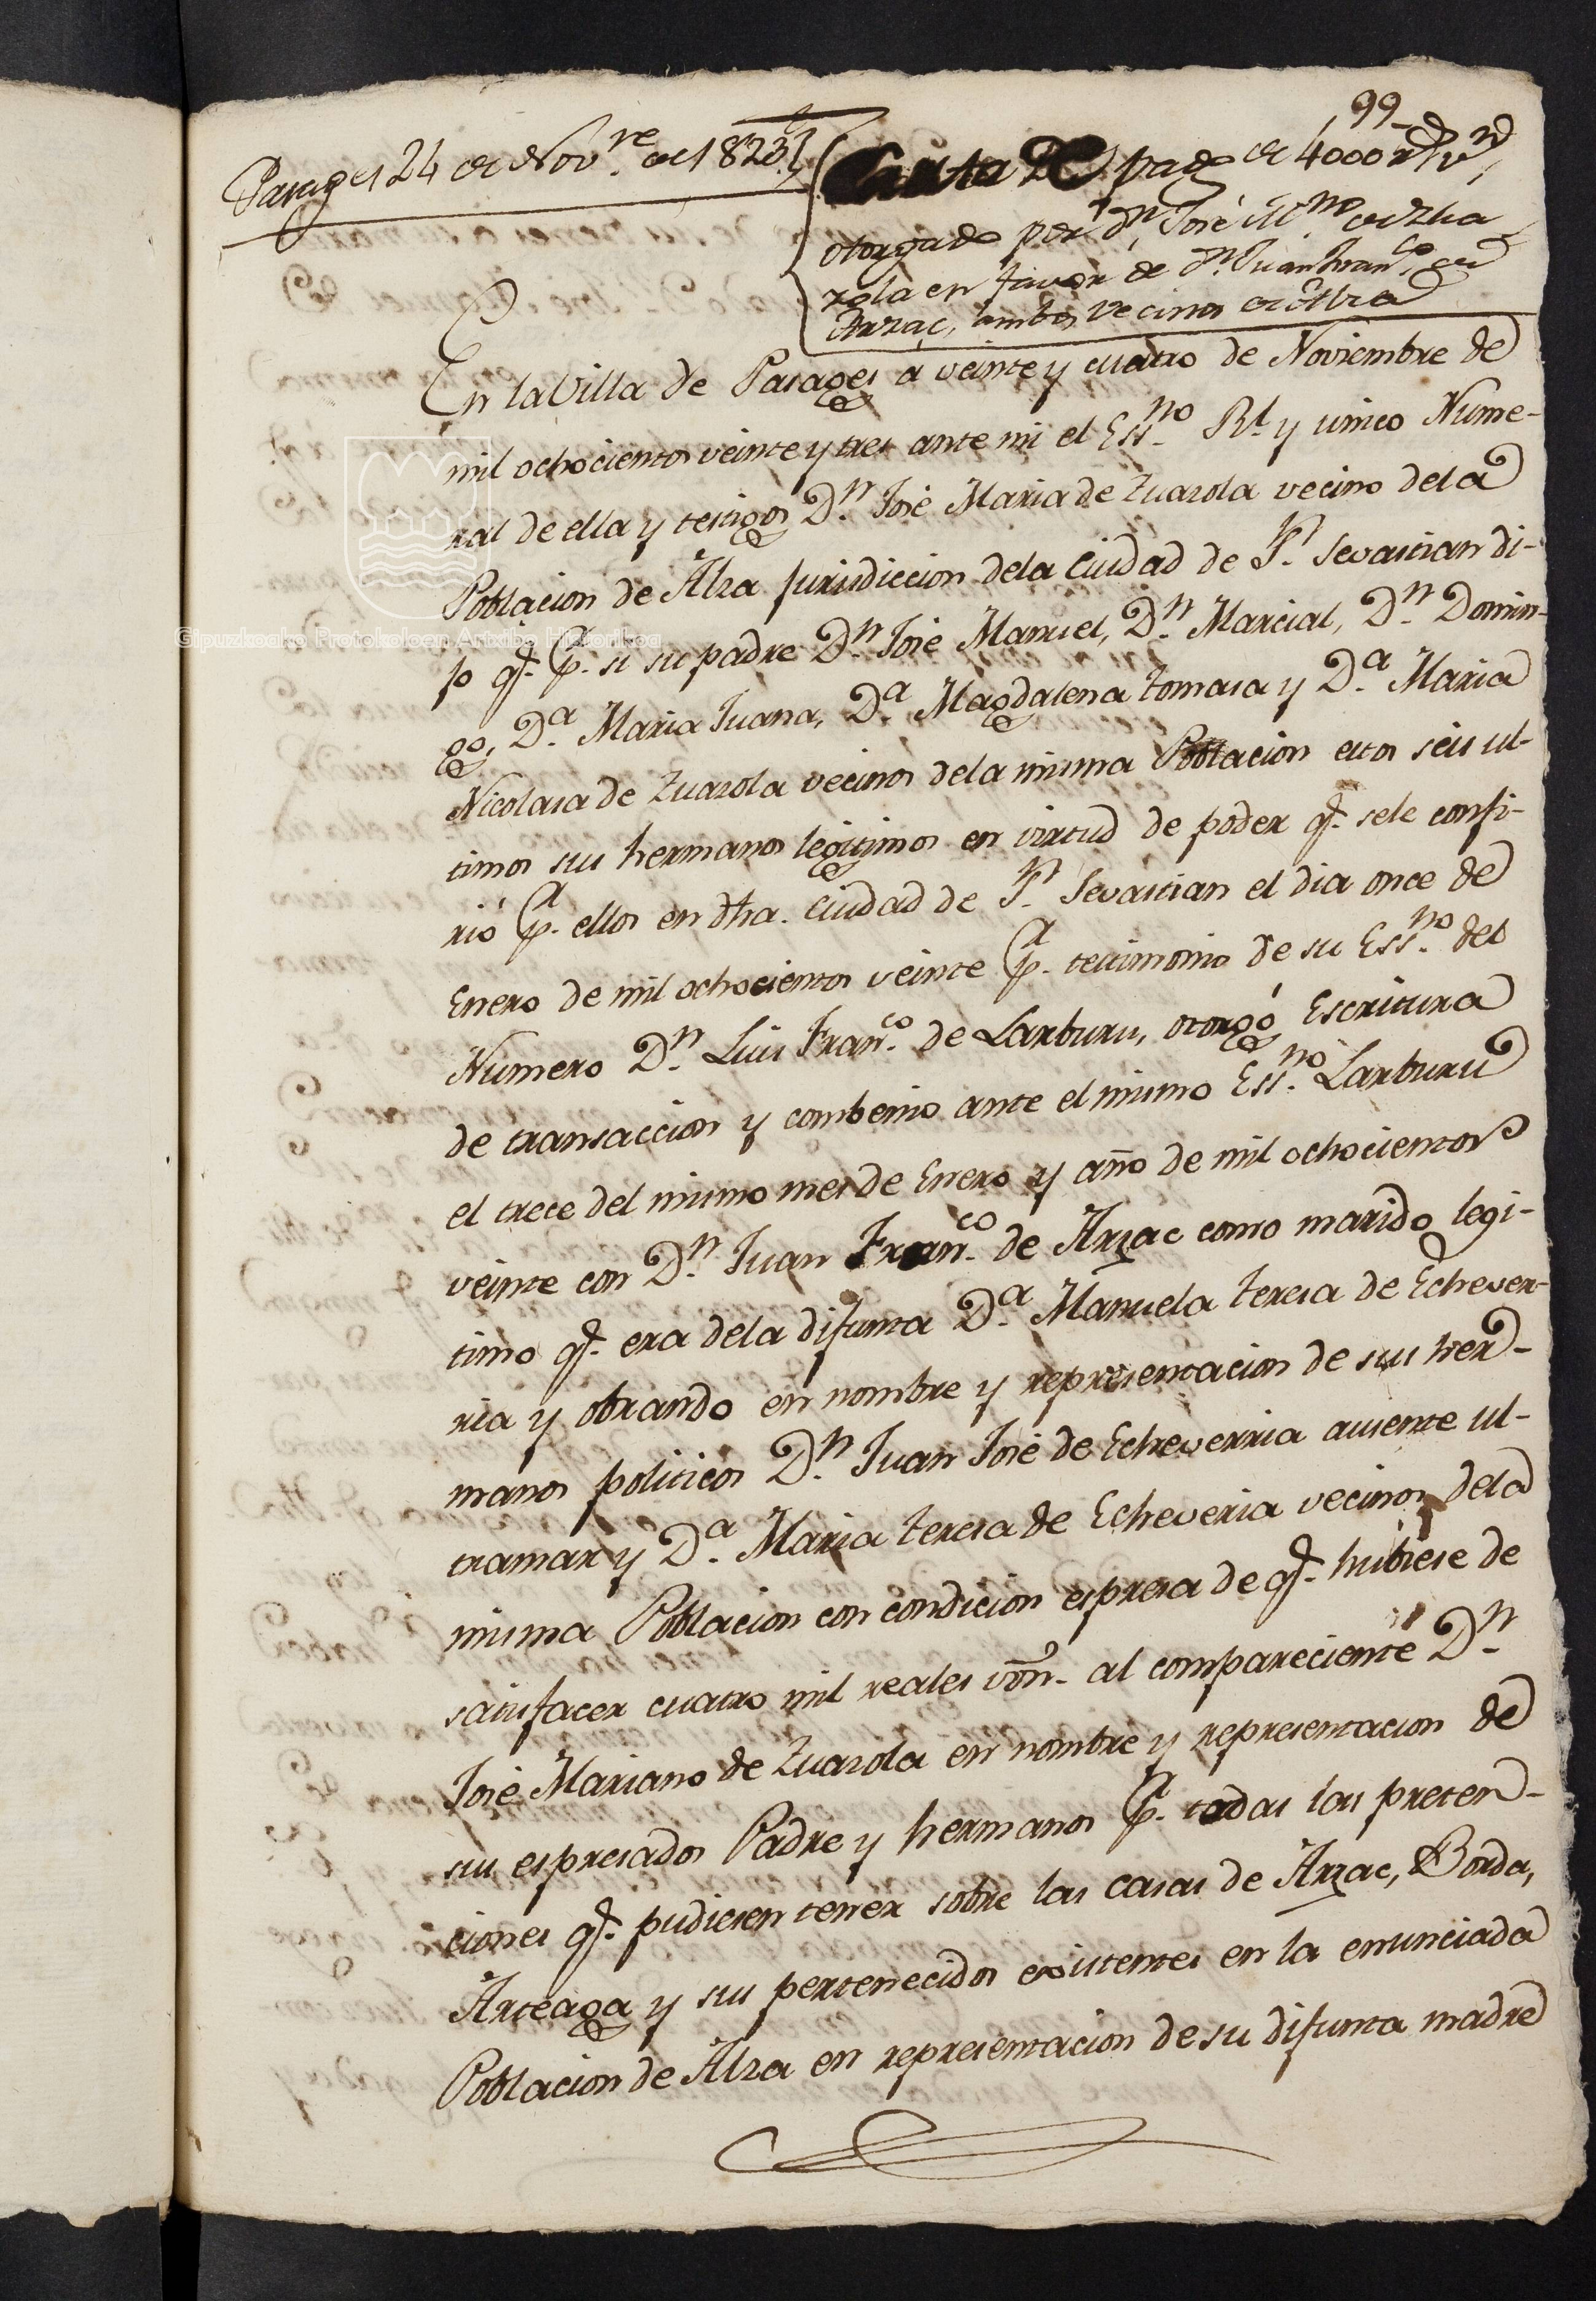 99
Pasages 24 de Nov.re de 1823
Carta de pago de 4000 rs vn
otorgado por Dn. José M.no de Zua
zola en favor de Dn. Juan Fran.co de
Arzac, ambos vecinos de Alza
En la Villa de Pasages á veinte y cuatro de Noviembre de
mil ochocientos veinte y tres ante mi el Ess.no Rl. y unico Nume-
ral de ella y testigos Dn. José Maria de Zuazola vecino dela
Poblacion de Alza jurisdiccion dela Ciudad de Sn. Sevastian di-
jo q.e p.r si su padre Dn. José Manuel, Dn. Marcial, Dn. Domin-
go, Da. Maria Juana, Da. Magdalena Tomasa y Da. Maria
Nicolasa de Zuazola vecinos dela misma Poblacion estos seis ul-
timos sus hermanos legitimos en virtud de poder q.e sele confi-
rió p.r ellos en dha. Ciudad de Sn. Sevastian el dia once de
Enero de mil ochocientos veinte p.r testimonio de su Ess.no del
Numero Dn. Luis Fran.co de Larburu, otorgó Escritura
de transaccion y combenio ante el mismo Ess.no Larburu
el trece del mismo mes de Enero y año de mil ochocientos
veinte con Dn. Juan Fran.co de Arzac como marido legi-
timo q.e era dela difunta Da. Manuela Teresa de Echever-
ria y obrando en nombre y representacion de sus her-
manos politicos Dn. Juan José de Echeverria ausente ul-
tramar y Da. Maria Teresa de Echeveria vecinos dela
misma Poblacion con condicion espresa de q.e hubiese de
satisfacer cuatro mil reales von. al compareciente Dn.
José Mariano de Zuazola en nombre y representacion de
sus espresados Padre y hermanos p.r todas las preten-
ciones q.e pudiesen tener sobre las casas de Arzac, Borda,
Arteaga y sus pertenecidos existentes en la enunciada
Poblacion de Alza en representacion de su difunta madre
Gipuzkoako Protokoloen Artxibo Historikoa